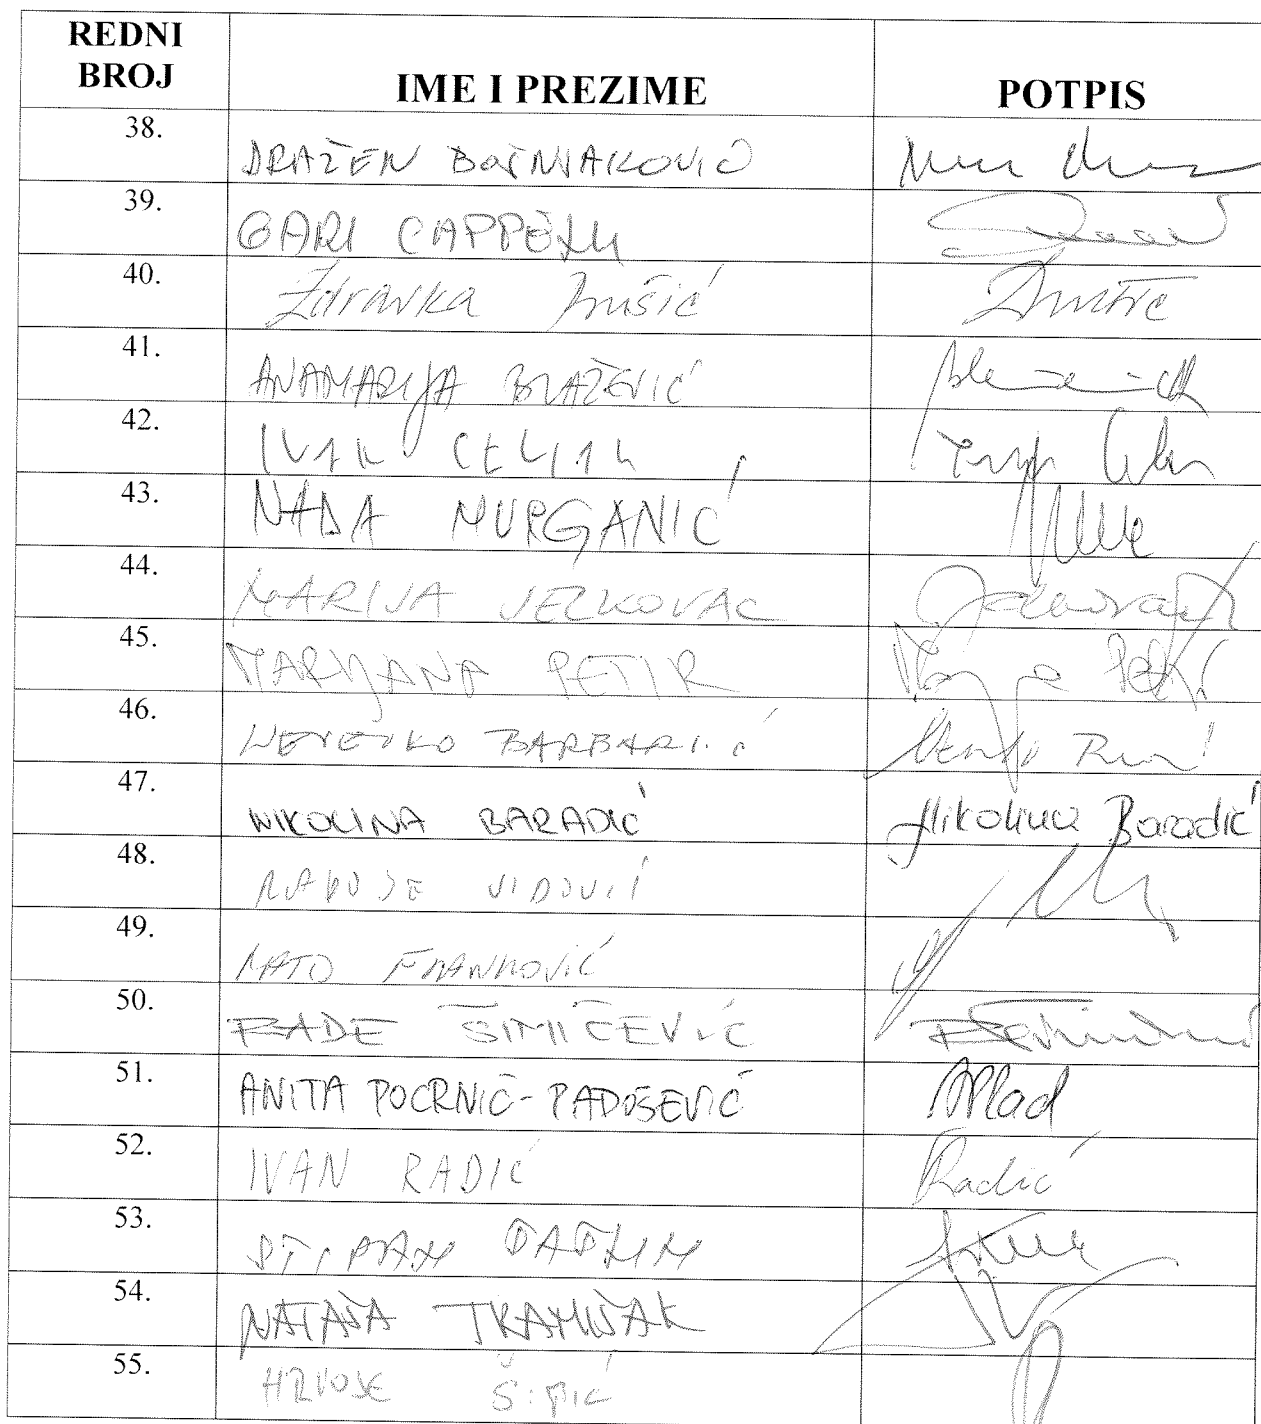 REDNI BROJ IME I PREZIME POTPIS
38. DRAŽEN BOŠNJAKOVIĆ
39. GARI CAPPELLI
40. Zdravka Bušić Bušić
41. ANAMARIJA BLAŽEVIĆ
42. IVAN CELJAK
43. NADA MURGANIĆ
44. MARIJA JELKOVAC Jelkovac
45. MARIJANA PETIR Marijana Petir
46. NEVENKO BARBARIĆ
47. NIKOLINA BARADIĆ Nikolina Baradić
48. RADOJE VIDOVIĆ
49. MATO FRANKOVIĆ
50. RADE ŠIMIČEVIĆ
51. ANITA POCRNIĆ-RADOŠEVIĆ
52. IVAN RADIĆ Radić
53. STIPAN ŠAŠLIN
54. NATAŠA TRAMIŠAK
55. HRVOJE ŠIPIĆ